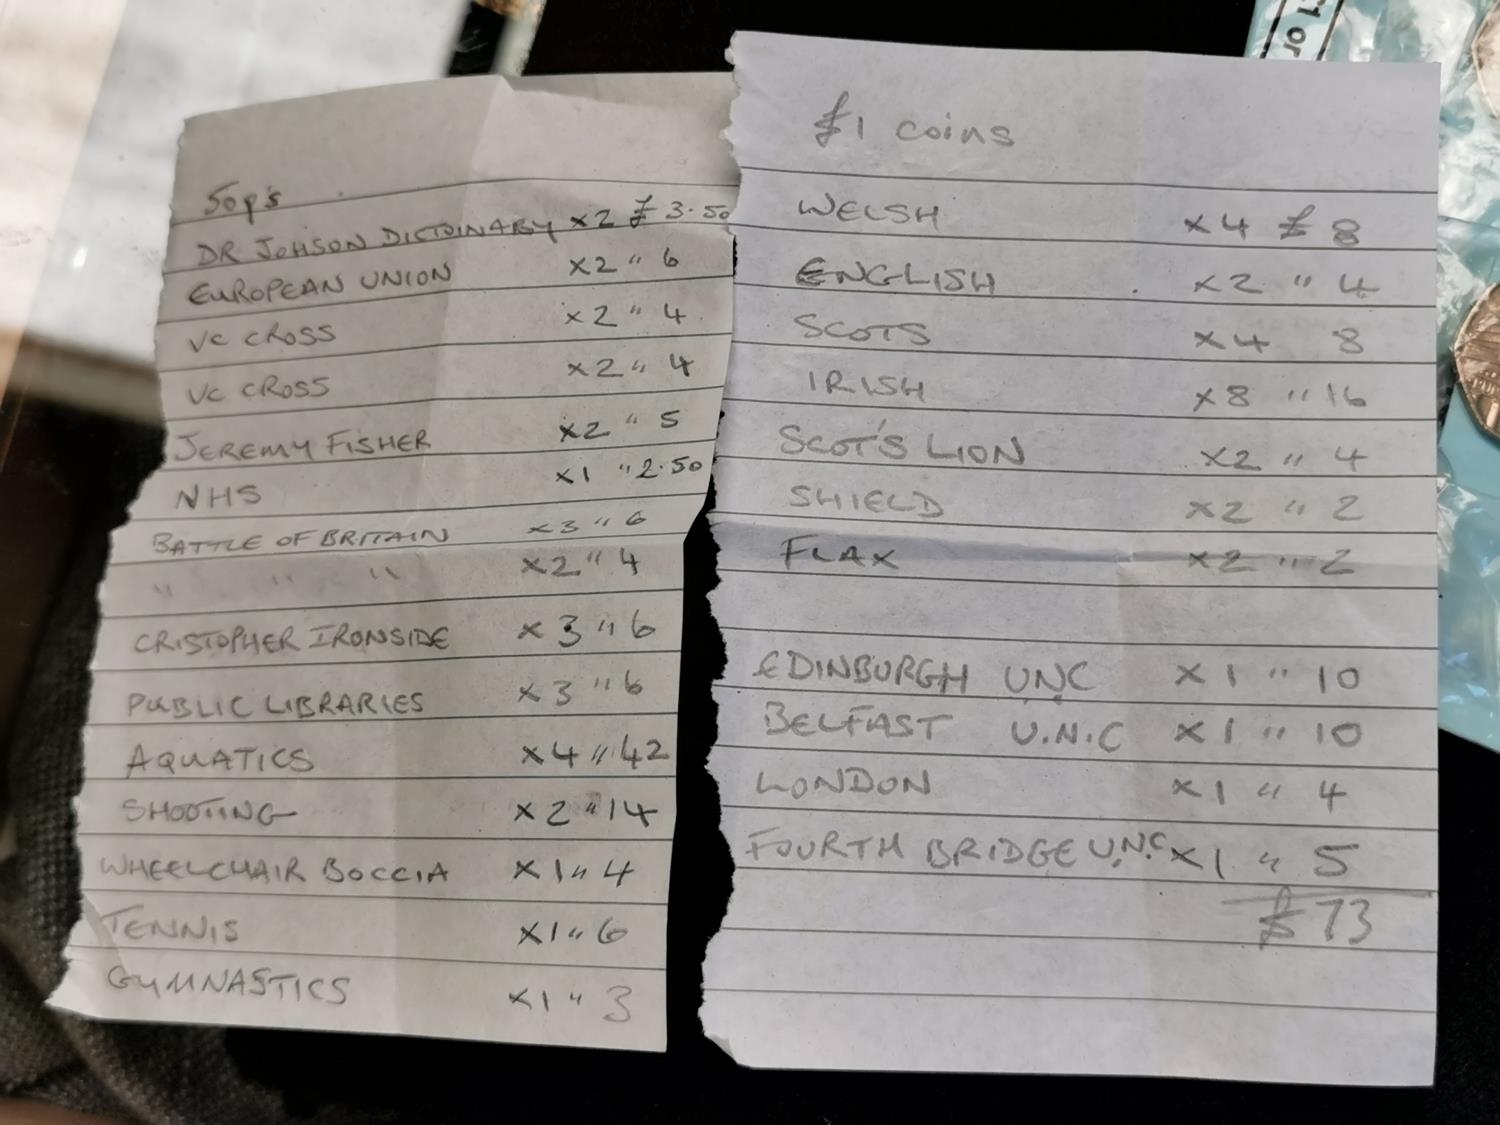 50p's
DR JOHSON DICTOINARY x2 £3.50
EUROPEAN UNION x2 " 6
VC CROSS x2 " 4
VC CROSS x2 " 4
JEREMY FISHER x2 " 5
NHS x1 " 2.50
BATTLE OF BRITAIN x3 " 6
" " " x2 " 4
CRISTOPHER IRONSIDE x3 " 6
PUBLIC LIBRARIES x3 " 6
AQUATICS x4 " 42
SHOOTING x2 " 14
WHEELCHAIR BOCCIA x1 " 4
TENNIS x1 " 6
GYMNASTICS x1 " 3
£1 coins
WELSH x4 £ 8
ENGLISH x2 " 4
SCOTS x4 8
IRISH x8 " 16
SCOT'S LION x2 " 4
SHIELD x2 " 2
FLAX x2 " 2
EDINBURGH UNC x1 " 10
BELFAST U.N.C x1 " 10
LONDON x1 " 4
FOURTH BRIDGE U.N.C x1 " 5
£73